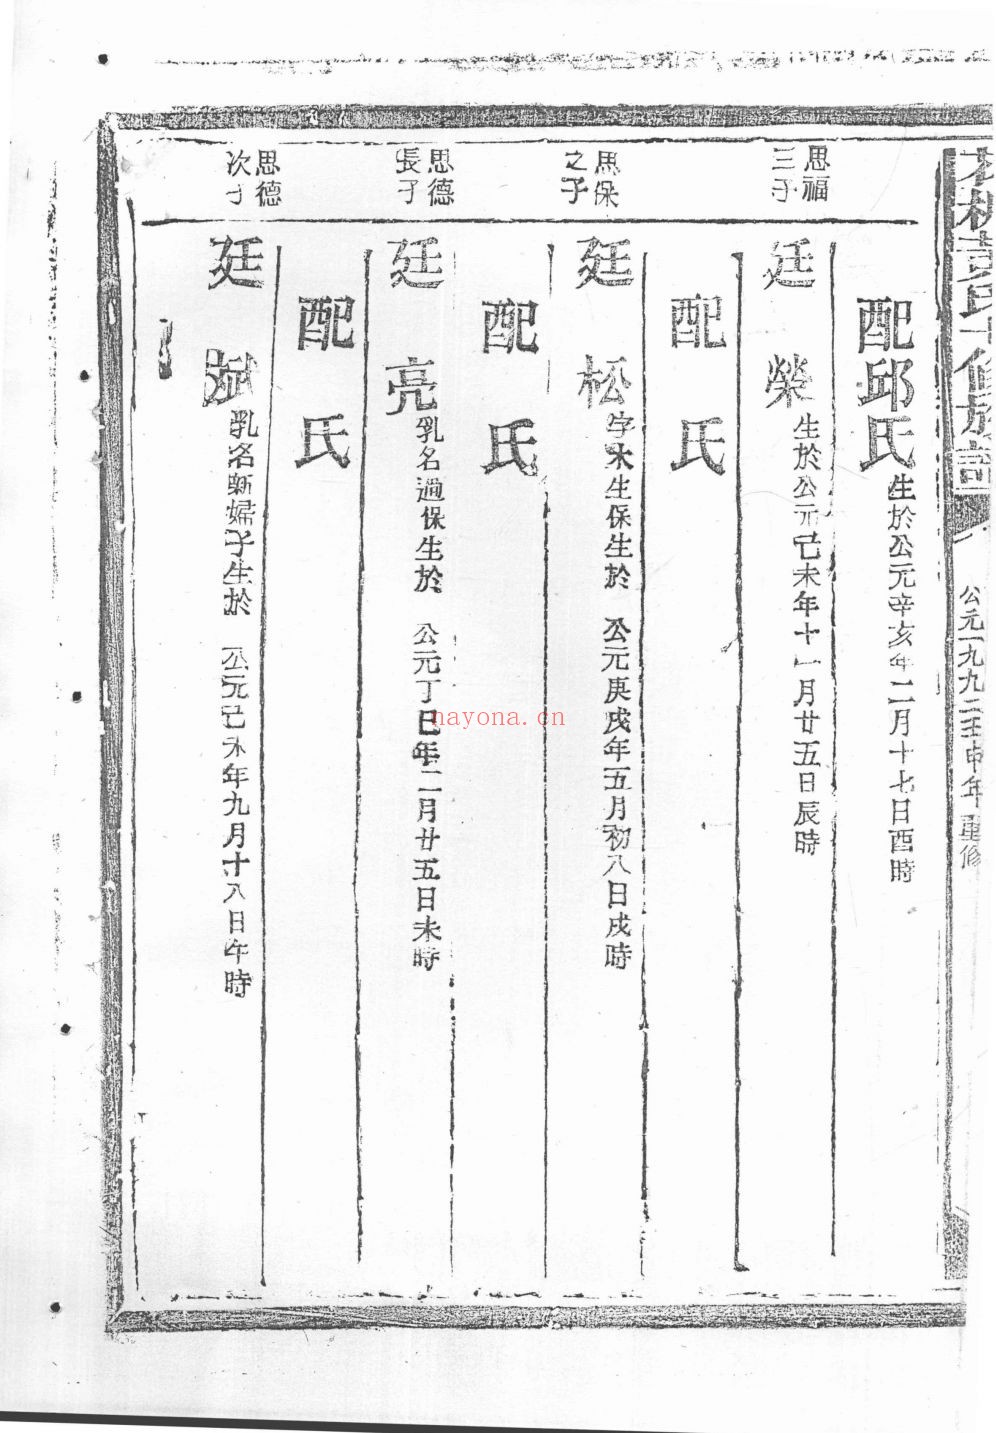 黃氏十修族譜
公元一九九二壬申年重修
配邱氏生於公元辛亥年二月十七日酉時
思福三子
廷榮生於公元己未年十一月廿五日辰時
配氏
思保之子
廷松字木生保生於 公元庚戌年五月初八日戌時
配氏
思德長子
廷亮乳名過保生於 公元丁巳年二月廿五日未時
配氏
思德次子
廷斌乳名新婦子生於 公元己未年九月十八日午時
nayona.cn